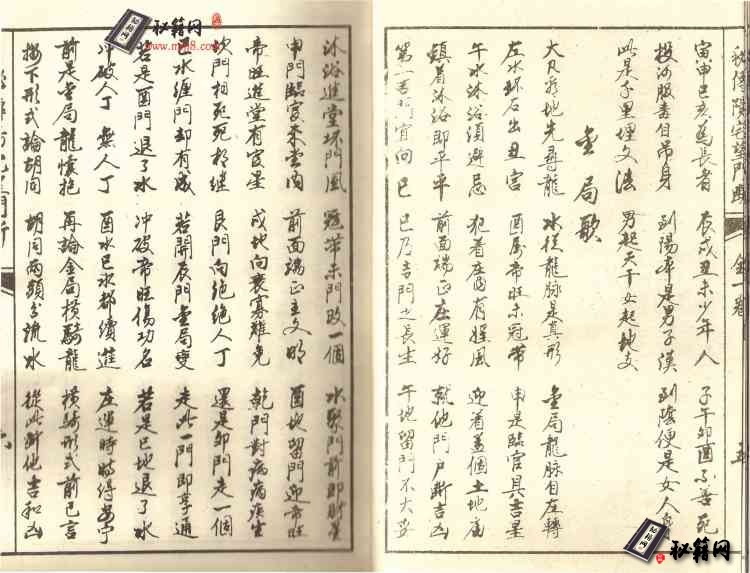 寅申巳亥為長者　辰戌丑未少年人　子午卯酉不善死
投河服毒自吊身　到陽本是男子漢　到陰便是女人
此是千里埋文法　男起天干女起地支
金局歌
大凡看地先尋龍　水從龍脉是真形　金局龍脉自左轉
左水环右出丑宫　酉為帝旺未冠帶　申是臨官具吉星
午水沐浴須避忌　犯着座宫有婬風　迎着盖個土地庙
鎮着沐浴即平平　前面端正庄運好　就他門户断吉凶
巳　巳乃吉門之長生　午地留門不大妥
沐浴進堂坏門風　冠帶未門改一個　水聚門前即
申門臨官来堂内　前面端正主文明　酉地留門迎帝旺
帝旺進堂有官星　戌地向衰寡難免　乾門對病病疾生
坎門相死死相継　艮門向絶絶人丁　還是卯門走一個
巴水纏門却有成　若開辰門金局变　走此一門即享通
若是酉門退了水　冲破帝旺傷功名　若是巳地退了水
冲破人丁無人丁　酉水巳水都續進　庄運時時得安宁
前是金局龍懷抱　再論金局横騎龍　横騎形式前已言
按下形式論胡同　胡同兩頭分流水　從此断他吉和凶
秘籍网